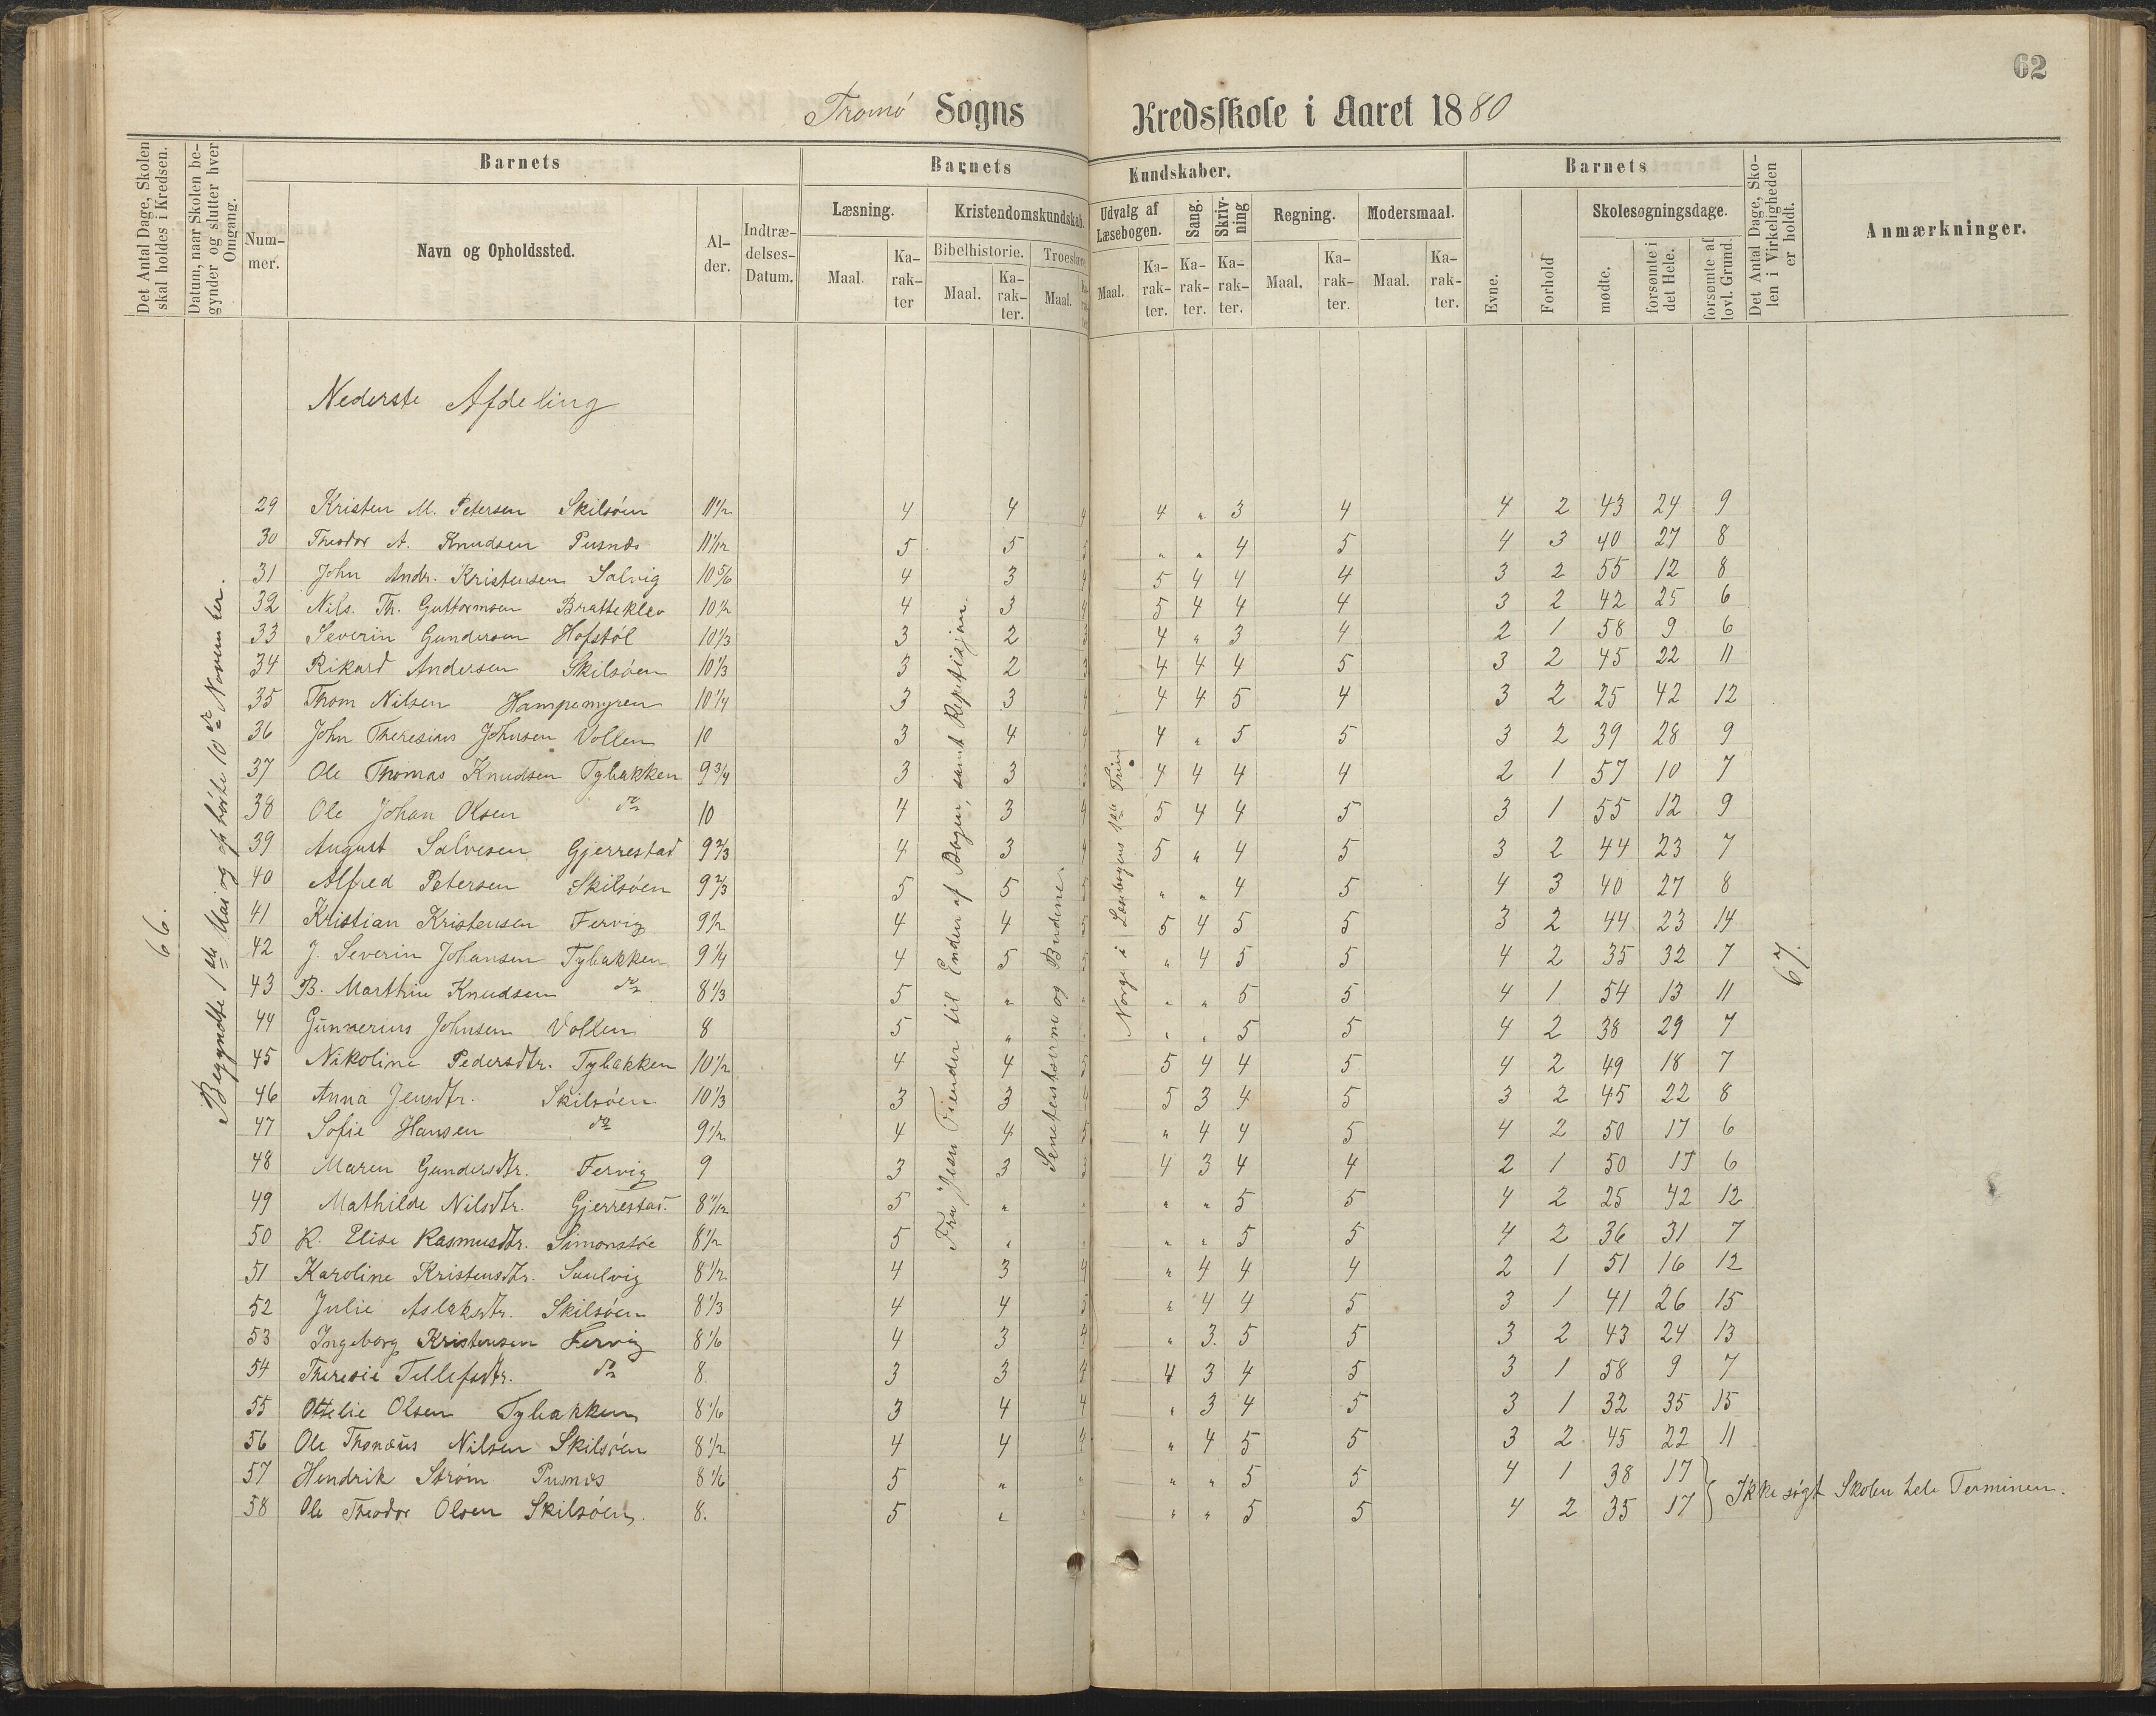 62
Tromö Sogns Kredsskole i Aaret 1880
Det Antal Dage, Skolen skal holdes i Kredsen.
Datum, naar Skolen begynder og slutter hver Omgang.
Barnets
Nummer.
Navn og Opholdssted.
Alder.
Indtrædelses-Datum.
Barnets Kundskaber.
Læsning.
Maal.
Karakter
Kristendomskundskab.
Bibelhistorie.
Maal.
Karakter.
Troeslære.
Maal.
Udvalg af Læsebogen.
Maal.
Karakter.
Sang.
Karakter.
Skrivning
Karakter.
Regning.
Maal.
Karakter.
Modersmaal.
Maal.
Karakter.
Barnets
Evne.
Forhold
Skolesøgningsdage.
mødte.
forsømte i det Hele.
forsømte af lovl. Grund.
Det Antal Dage, Skolen i Virkeligheden er holdt.
Anmærkninger.
Nederste Afdeling
66.
Begyndte 1ste Mai og ophörte 10de November.
Fra "Jesu Fiender til Enden af Bogen, samt Repetisjon.
og Budene.
Norge i Læsebogens 1ste Trin
67.
29 Kristen M. Petersen Skilsöen 11 1/2 4 4 4 4 " 3 4 4 2 43 24 9
30 Theodor A. Knudsen Pusnæs 11 1/12 5 5 5 " " 4 5 4 3 40 27 8
31 John Andr. Kristensen Salvig 10 5/6 4 3 4 5 4 4 4 3 2 55 12 8
32 Nils. Th. Guttormsen Bratteklev 10 1/2 4 3 4 5 4 4 4 3 2 42 25 6
33 Severin Gundersen Hofstöl 10 1/3 3 2 3 4 " 3 4 2 1 58 9 6
34 Rikard Andersen Skilsöen 10 1/3 3 2 3 4 4 4 5 3 2 45 22 11
35 Thom Nilsen Hampemyren 10 1/4 3 3 4 4 4 5 4 3 2 25 42 12
36 John Theresius Johnsen Vollen 10 3 4 4 4 " 5 5 3 2 39 28 9
37 Ole Thomas Knudsen Tybakken 9 3/4 3 3 3 4 4 4 4 2 1 57 10 7
38 Ole Johan Olsen do 10 4 3 4 5 4 4 5 3 1 55 12 9
39 August Salvesen Gjerrestad 9 2/3 4 3 4 5 " 4 5 3 2 44 23 7
40 Alfred Petersen Skilsöen 9 2/3 5 5 5 " " 4 5 4 3 40 27 8
41 Kristian Kristensen Fervig 9 1/2 4 4 5 5 4 5 5 3 2 44 23 14
42 J. Severin Johansen Tybakken 9 1/4 4 5 5 " 4 5 5 4 2 35 32 7
43 B. Marthin Knudsen do 8 1/3 5 " " " " 5 5 4 1 54 13 11
44 Gunnerius Johnsen Vollen 8 5 " " " " 5 5 4 2 38 29 7
45 Nikoline Pedersdtr. Tybakken 10 1/2 4 4 5 5 4 4 5 4 2 49 18 7
46 Anna Jensdtr. Skilsöen 10 1/3 3 3 4 5 3 4 5 3 2 45 22 8
47 Sofie Hansen do 9 1/2 4 4 5 " 4 4 5 4 2 50 17 6
48 Maren Gundersdtr. Fervig 9 3 3 3 4 3 4 4 2 1 50 17 6
49 Mathilde Nilsdtr. Gjerrestad. 8 11/12 5 " " " " 5 5 4 2 25 42 12
50 K. Elise Rasmusdtr. Simonstöe 8 1/2 5 " " " " 5 5 4 2 36 31 7
51 Karoline Kristensdtr. Saulvig 8 1/2 4 3 4 " 4 4 4 2 1 51 16 12
52 Julie Aslaksdtr. Skilsöen 8 1/3 4 4 5 " 4 4 5 3 1 41 26 15
53 Ingeborg Kristensen Fervig 8 1/6 4 3 4 " 3. 5 5 3 2 43 24 13
54 Theresie Tellefsdtr. do 8. 3 3 4 4 3 4 5 3 1 58 9 7
55 Ottelie Olsen Tybakken 8 1/6 3 4 4 " 3 4 5 3 1 32 35 15
56 Ole Thonæus Nilsen Skilsöen 8 1/2 4 4 4 " 4 5 5 3 2 45 22 11
57 Hendrik Ström Pusnæs 8 1/6 5 " " " " 5 5 4 1 38 17
58 Ole Theodor Olsen Skilsöen. 8. 5 " " " " 5 5 4 2 35 17 } Ikke sögt Skolen hele Terminen.